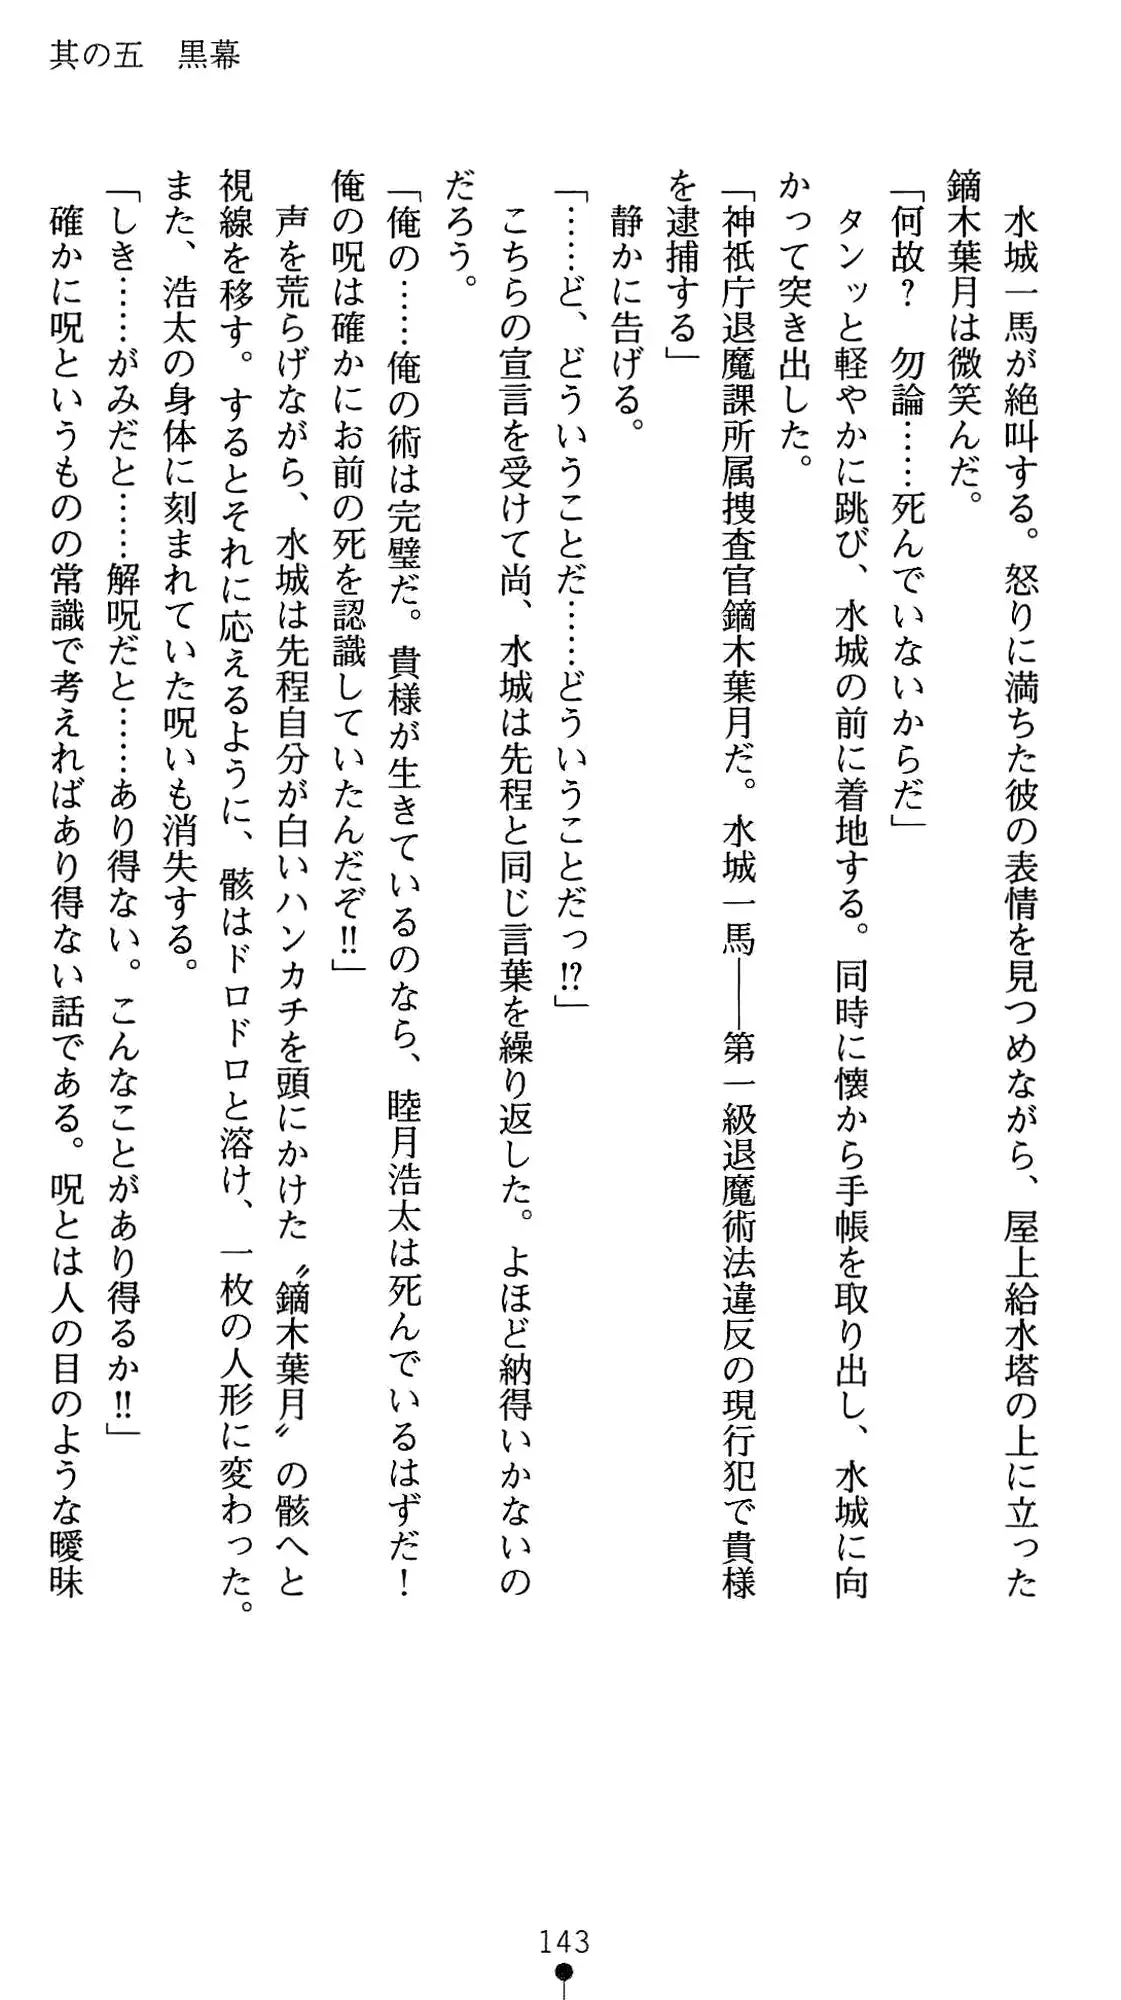 其の五　黒幕
　水城一馬が絶叫する。怒りに満ちた彼の表情を見つめながら、屋上給水塔の上に立った
鏑木葉月は微笑んだ。
「何故？　勿論……死んでいないからだ」
　タンッと軽やかに跳び、水城の前に着地する。同時に懐から手帳を取り出し、水城に向
かって突き出した。
「神祇庁退魔課所属捜査官鏑木葉月だ。水城一馬――第一級退魔術法違反の現行犯で貴様
を逮捕する」
　静かに告げる。
「……ど、どういうことだ……どういうことだっ!?」
　こちらの宣言を受けて尚、水城は先程と同じ言葉を繰り返した。よほど納得いかないの
だろう。
「俺の……俺の術は完璧だ。貴様が生きているのなら、睦月浩太は死んでいるはずだ！
俺の呪は確かにお前の死を認識していたんだぞ!!」
　声を荒らげながら、水城は先程自分が白いハンカチを頭にかけた〝鏑木葉月〟の骸へと
視線を移す。するとそれに応えるように、骸はドロドロと溶け、一枚の人形に変わった。
また、浩太の身体に刻まれていた呪いも消失する。
「しき……がみだと……解呪だと……あり得ない。こんなことがあり得るか!!」
　確かに呪というものの常識で考えればあり得ない話である。呪とは人の目のような曖昧
143